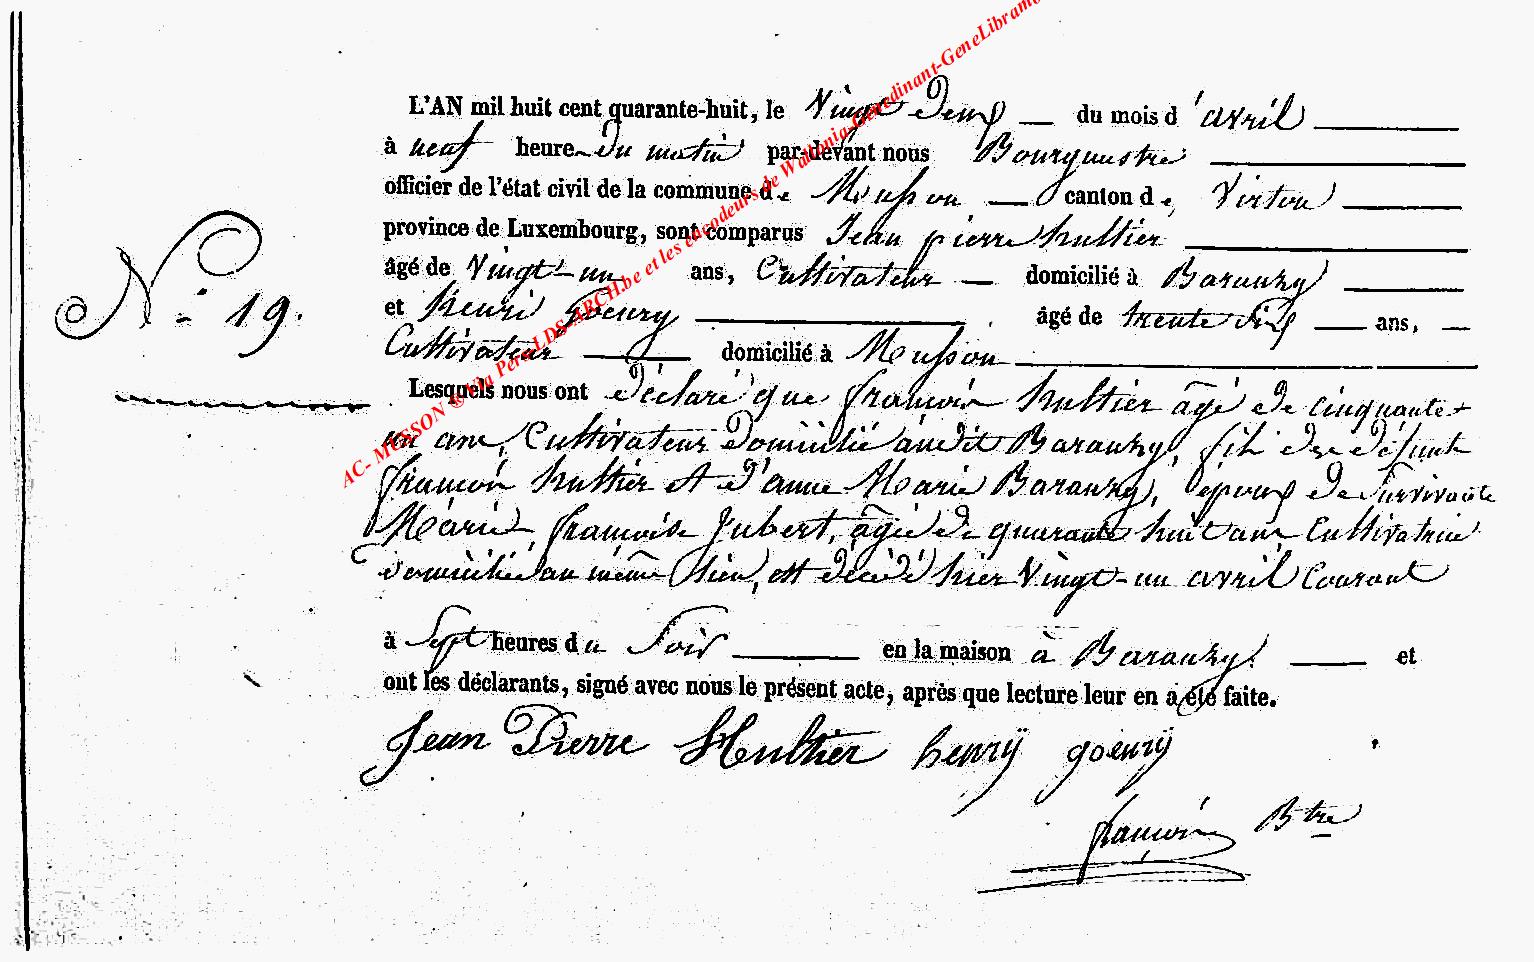 L'AN mil huit cent quarante-huit, le Vingt Deux du mois d'avril
à neuf heure du matin par-devant nous Bourgmestre
officier de l'état civil de la commune de Musson canton de Virton
province de Luxembourg, sont comparus Jean pierre hultier
âgé de Vingt-un ans, Cultivateur domicilié à Baranzy
N° 19.
et henri Goeury âgé de trente six ans,
Cultivateur domicilié à Musson
Lesquels nous ont déclaré que françois hultier âgé de cinquante
un ans, Cultivateur Domicilié audit Baranzy, fils de défunt
françois hultier et d'anne Marie Baranzy, époux de Survivante
Marie françoise Jubert, âgée de quarante huit ans Cultivatrice
domiciliée au même lieu, est décédé hier Vingt-un avril Courant
à Sept heures du Soir en la maison à Baranzy. et
ont les déclarants, signé avec nous le présent acte, après que lecture leur en a été faite.
Jean Pierre Hultier henry goeury
françois Btre
AC- MUSSON © Via Pere-LDS-ARCH.be et les encodeurs de Wallonia-Genedinant-GeneLibramo